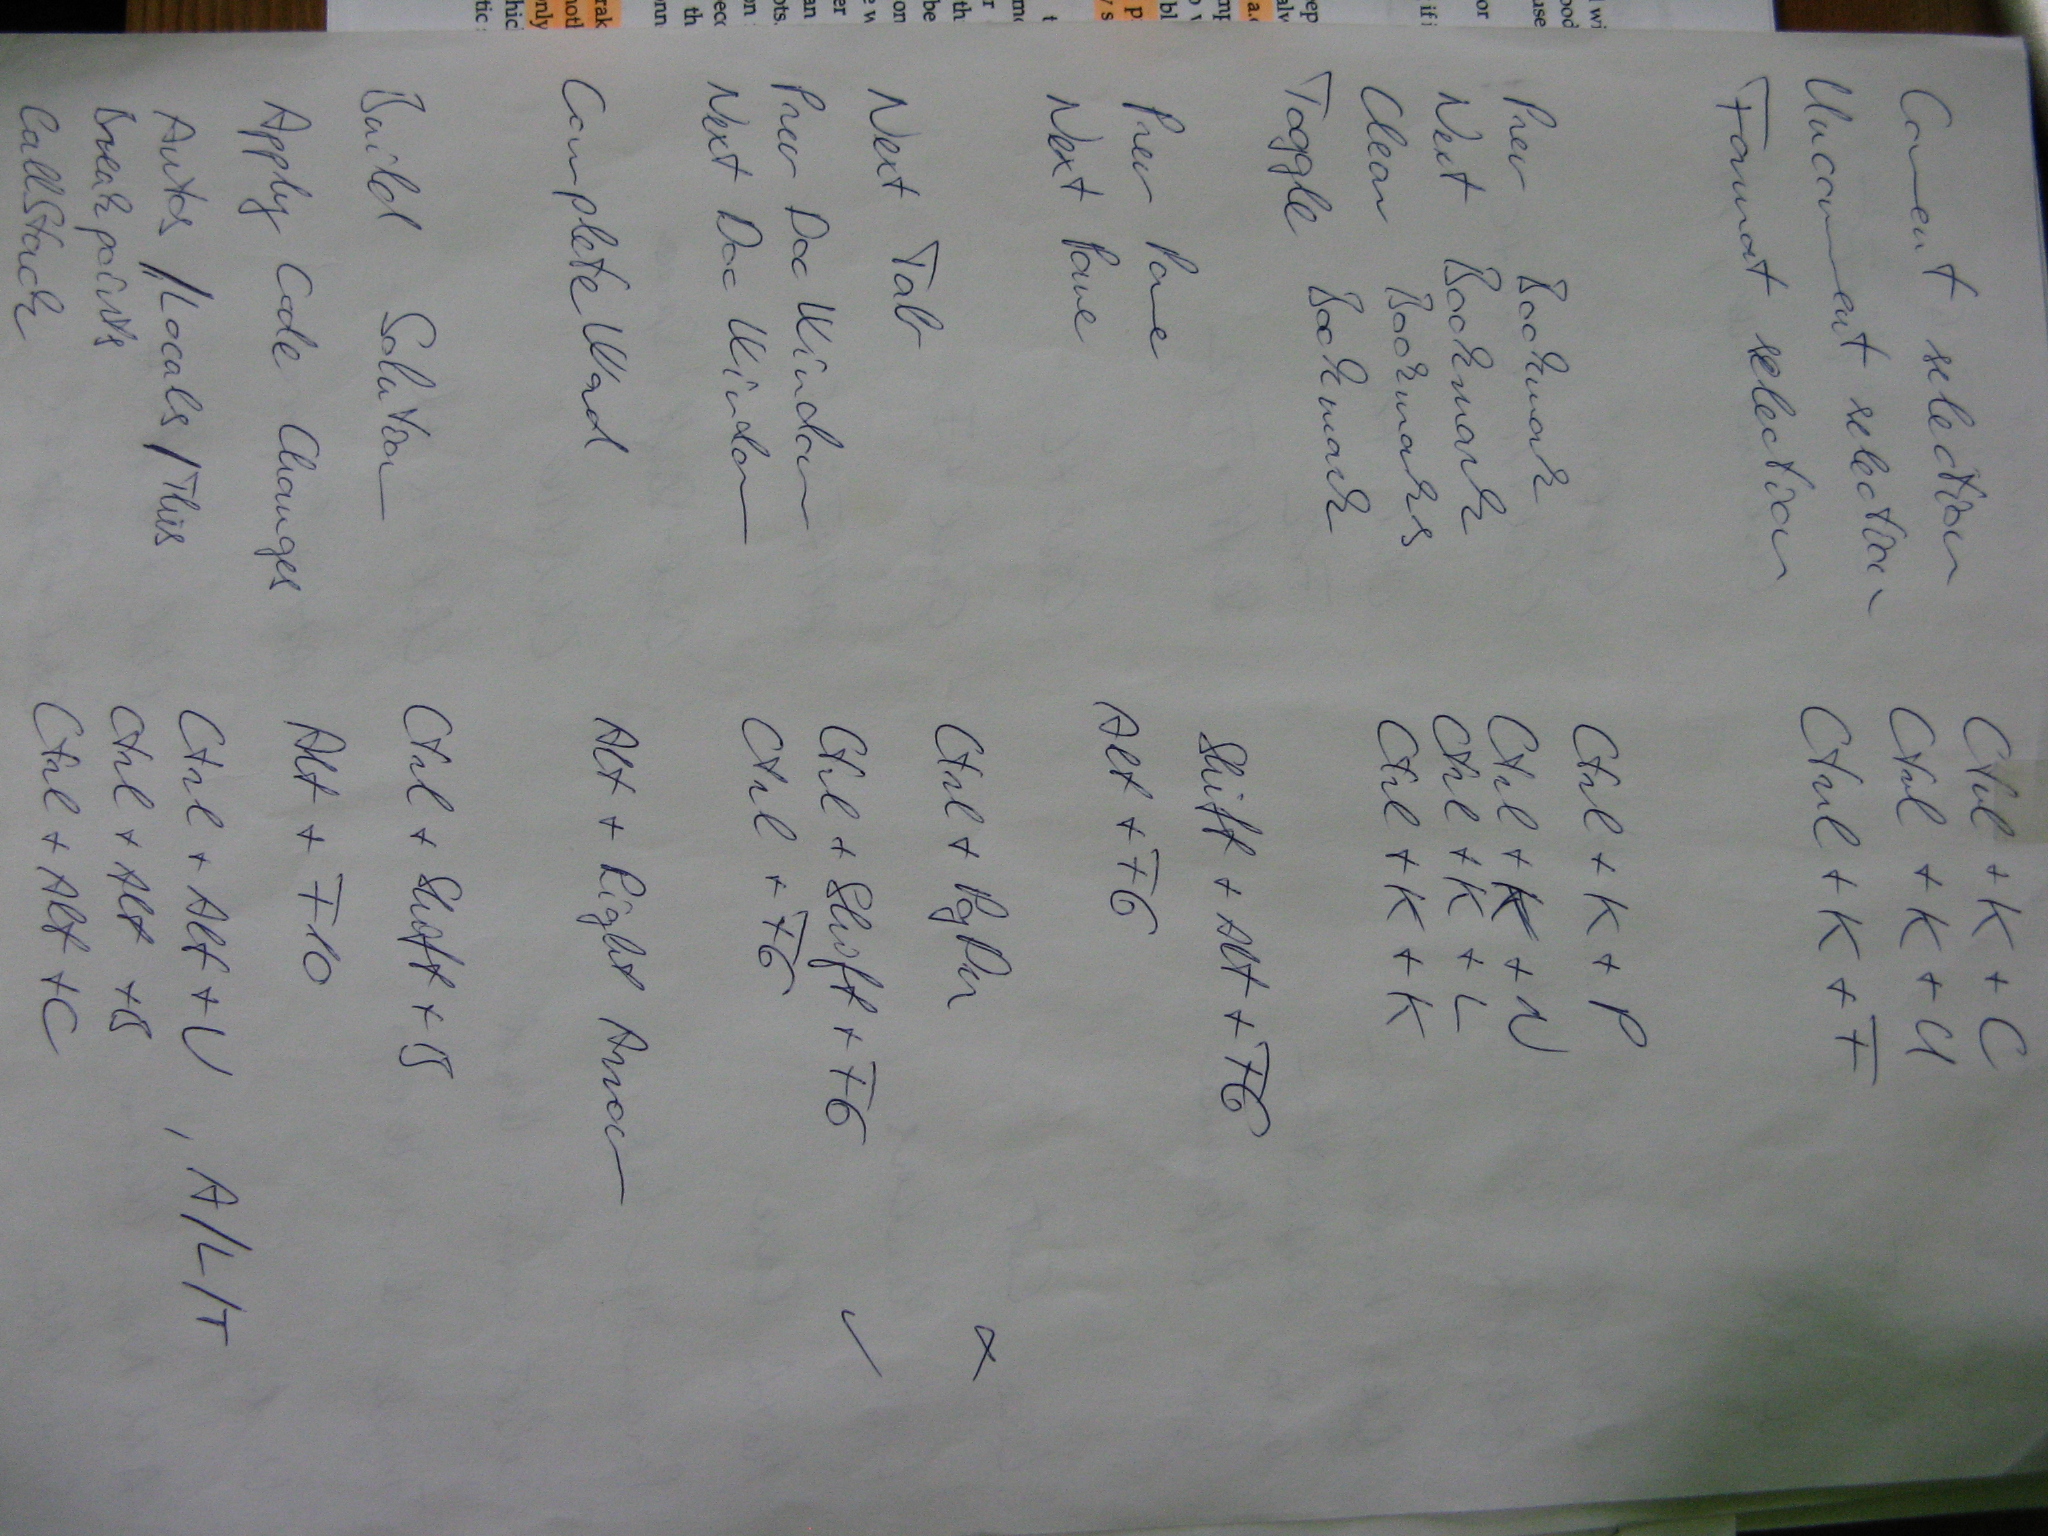 Comment selection Ctrl + K + C
Uncomment selection Ctrl + K + U
Format selection Ctrl + K + F
Prev Bookmark Ctrl + K + P
Next Bookmark Ctrl + K + N
Clear Bookmarks Ctrl + K + L
Toggle Bookmark Ctrl + K + K
Prev Pane Shift + Alt + F6
Next Pane Alt + F6
Next Tab Ctrl + PgDn
Prev Doc Window Ctrl + Shift + F6 ✓
Next Doc Window Ctrl + F6
Complete Word Alt + Right Arrow
Build Solution Ctrl + Shift + B
Apply Code Changes Alt + F10
Autos / Locals / This Ctrl + Alt + V , A/L/T
Breakpoints Ctrl + Alt + B
CallStack Ctrl + Alt + C